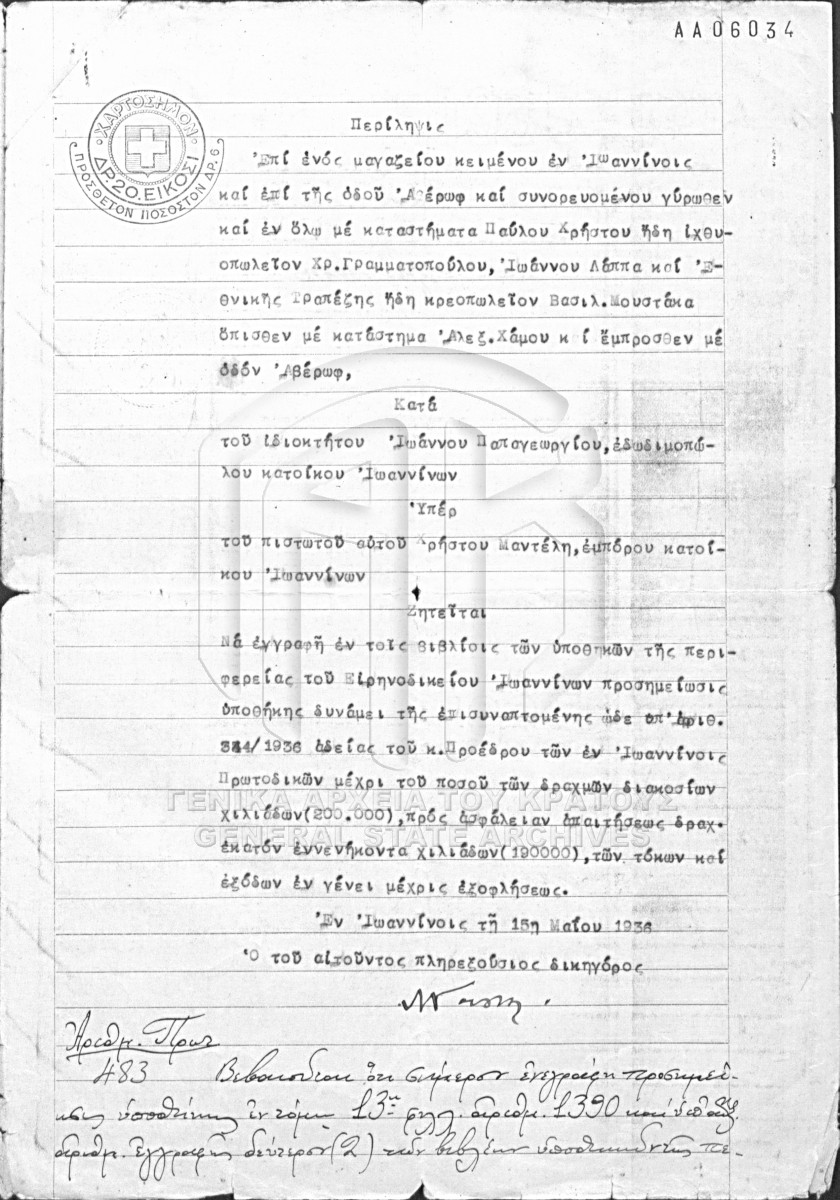 ΑΑ06034
ΧΑΡΤΟΣΗΜΟΝ
ΔΡ.20.ΕΙΚΟΣΙ
ΠΡΟΣΘΕΤΟΝ ΠΟΣΟΣΤΟΝ ΔΡ.6
Περίληψις
Ἐπί ἑνός μαγαζείου κειμένου ἐν Ἰωαννίνοις
καί ἐπί τῆς ὁδοῦ Ἀβέρωφ καί συνορευομένου γύρωθεν
καί ἐν ὅλῳ μέ καταστήματα Παύλου Χρήστου ἤδη ἰχθυ-
οπωλεῖον Χρ.Γραμματοπούλου, Ἰωάννου Λάππα καί Ἐ-
θνικῆς Τραπέζης ἤδη κρεοπωλεῖον Βασιλ.Μουστάκα
ὄπισθεν μέ κατάστημα Ἀλεξ.Χάμου κ ί ἔμπροσθεν μέ
ὁδόν Ἀβέρωφ,
Κατά
τοῦ ἰδιοκτήτου Ἰωάννου Παπαγεωργίου, ἐδωδιμοπώ-
λου κατοίκου Ἰωαννίνων
Ὑπέρ
τοῦ πιστωτοῦ αὐτοῦ Χρήστου Μαντέλη, ἐμπόρου κατοί-
κου Ἰωαννίνων
Ζητεῖται
Νά ἐγγραφῇ ἐν τοῖς βιβλίοις τῶν ὑποθηκῶν τῆς περι-
φερείας τοῦ Εἰρηνοδικείου Ἰωαννίνων προσημείωσις
ὑποθήκης δυνάμει τῆς ἐπισυναπτομένης ὧδε ὑπ' ἀριθ.
344/1936 ἀδείας τοῦ κ.Προέδρου τῶν ἐν Ἰωαννίνοις
Πρωτοδικῶν μέχρι τοῦ ποσοῦ τῶν δραχμῶν διακοσίων
ΓΕΝΙΚΑ ΑΡΧΕΙΑ ΤΟΥ ΚΡΑΤΟΥΣ
χιλιάδων(200.000), πρός ἀσφάλειαν ἀπαιτήσεως δραχ.
GENERAL STATE ARCHIVES
ἑκατόν ἐννενήκοντα χιλιάδων(190000), τῶν τόκων καί
ἐξόδων ἐν γένει μέχρις ἐξοφλήσεως.
Ἐν Ἰωαννίνοις τῇ 15ῃ Μαΐου 1936
Ὁ τοῦ αἰτοῦντος πληρεξούσιος δικηγόρος
Ἀριθμ. Πρωτ
483 Βεβαιοῦται ὅτι σήμερον ἐνεγράφη προσημεί-
ωσις ὑποθήκης ἐν τόμῳ 13ῳ ἀριθμ. 1390 καί
ἀριθμ. ἐγγραφῆς δεύτερον (2) τῶν βιβλίων ὑποθηκῶν τῆς πε-